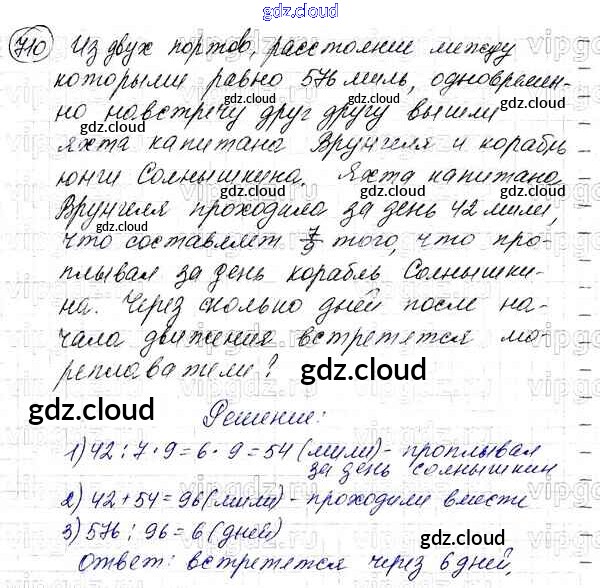 gdz.cloud
710 Из двух портов, расстояние между
которыми равно 576 миль, одновремен-
но навстречу друг другу вышли
gdz.cloud gdz.cloud
яхта капитана Врунгеля и корабль
юнги Солнышкина. Яхта капитана
Врунгеля проходила за день 42 мили,
что составляет 7/9 того, что про-
плывал за день корабль Солнышки-
на. Через сколько дней после на-
чала движения встретятся мо-
реплаватели?
gdz.cloud
gdz.cloud gdz.cloud
Решение:
1) 42 : 7 · 9 = 6 · 9 = 54 (мили) - проплывал
за день солнышкин
2) 42 + 54 = 96 (мили) - проходили вместе
3) 576 : 96 = 6 (дней)
ответ: встретятся через 6 дней,
gdz.cloud gdz.cloud